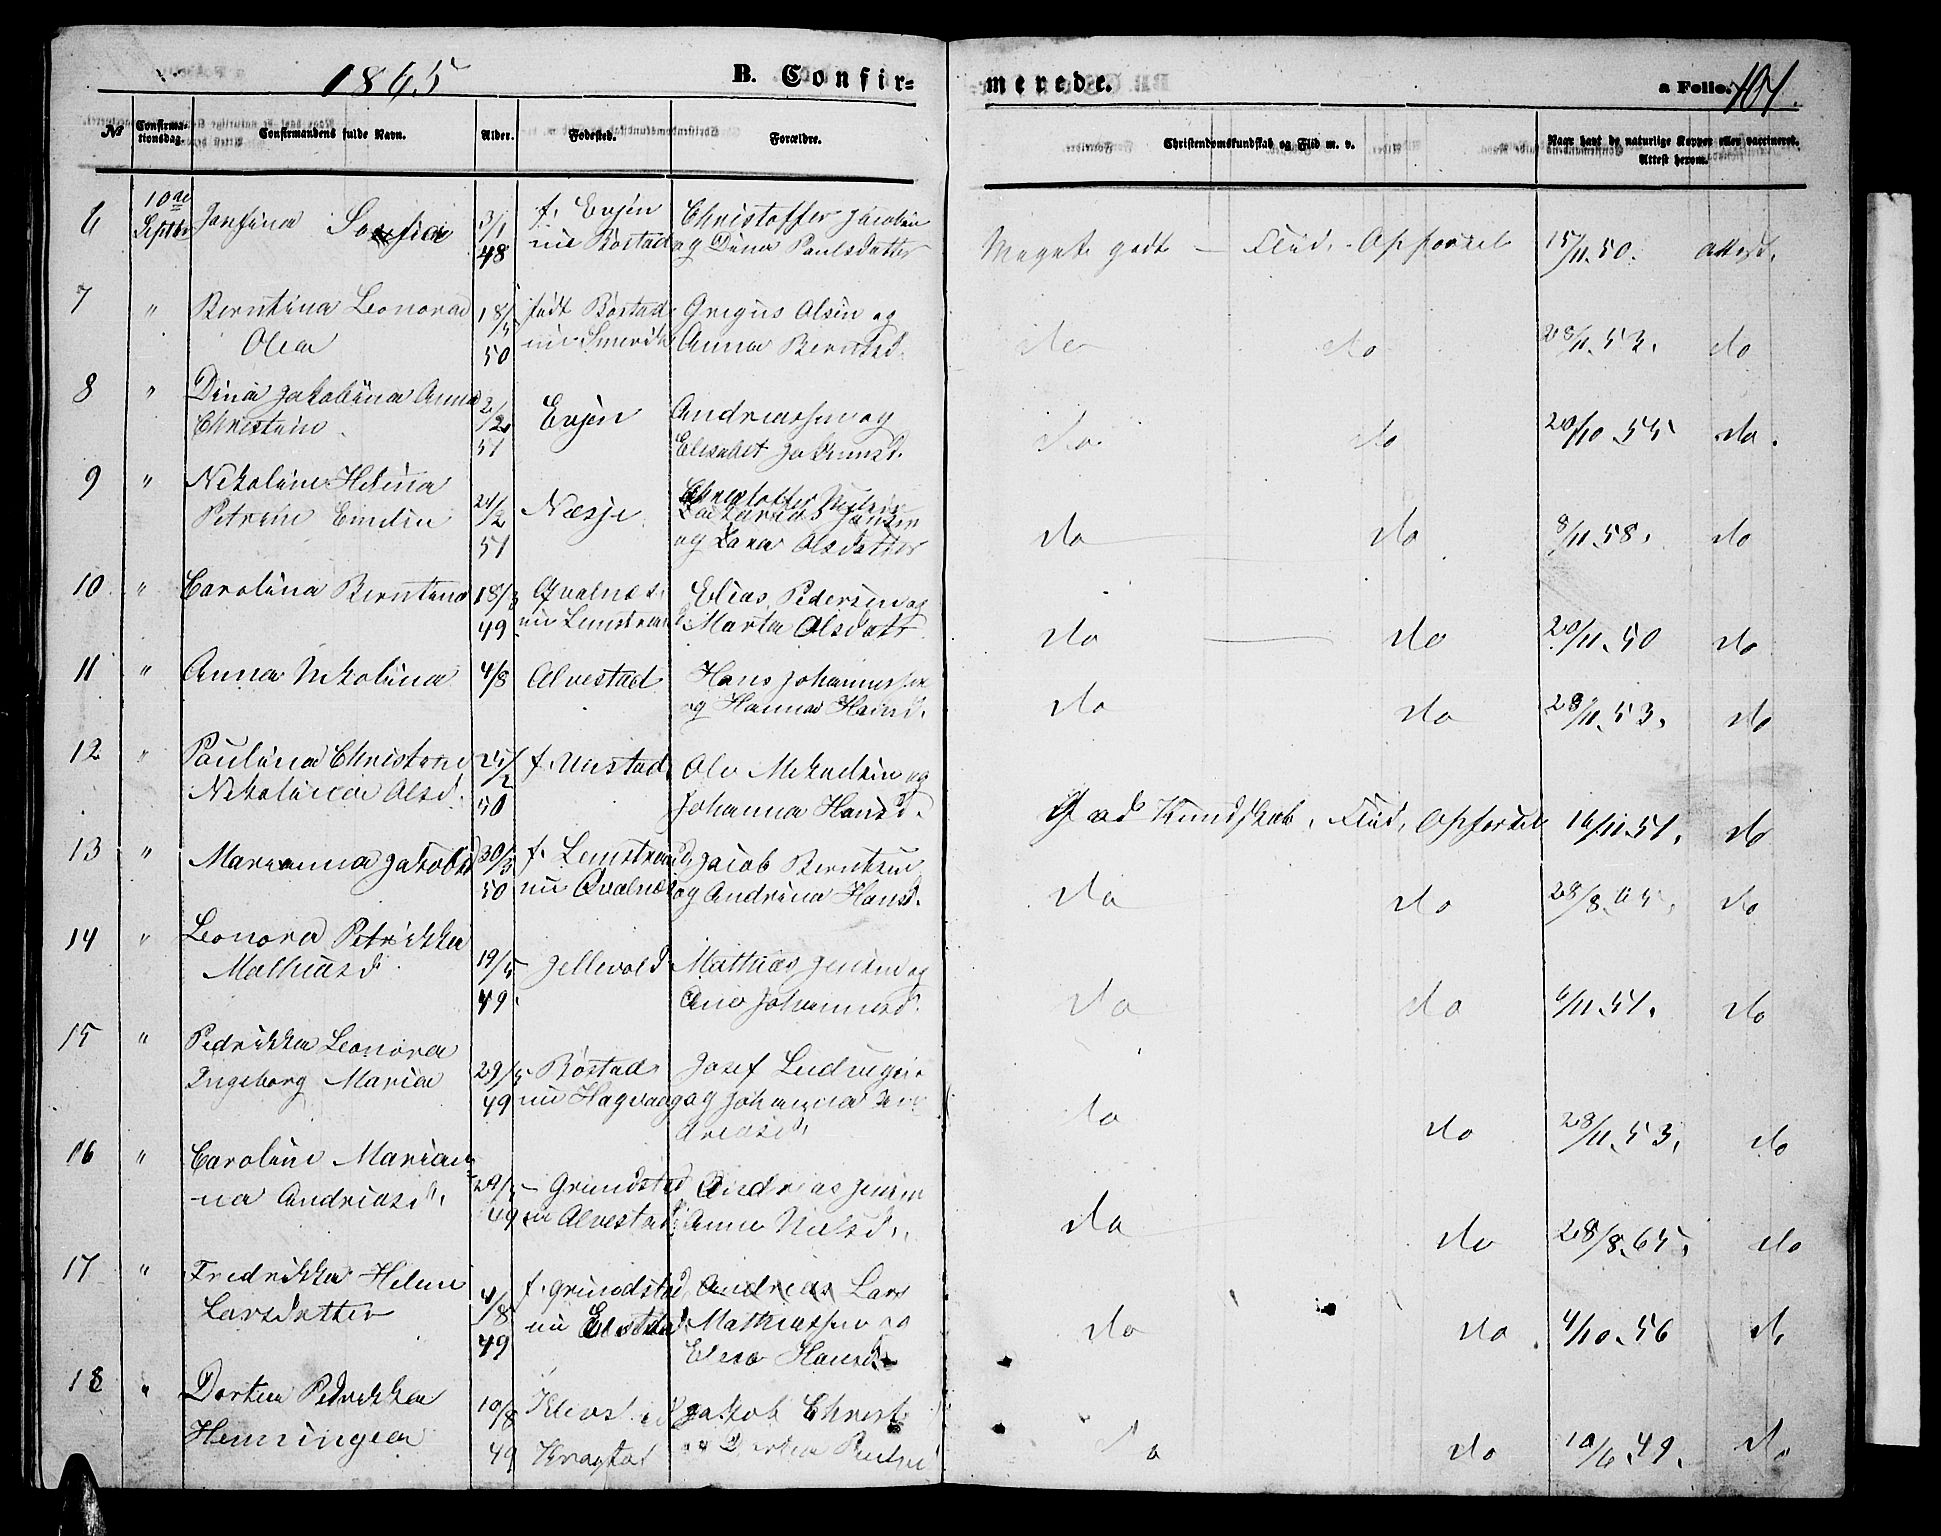 1865
B. Confir=
merede.
a Folio. 101.
No
Confirma-
tionsdag.
Confirmandens fulde Navn.
Alder.
Fødested.
Forældre.
Christendomskundskab og Flid m. v.
Naar havt de naturlige Kopper eller vaccineret.
Attest herom.
6 10de Septbr Josefina Sofia 3/1 48 f. Evjen nu Bøstad Christoffer Jacobsen og Dina Paulsdatter Meget godt — Flid. Opførsel 15/11.50. attest.
7 " Berntina Leonora Olea 18/5 50 født Bøstad Gregus Olsen og Anna Berntsd. do do 28/11.53. do
8 " Dina Jakobina Anna Christin 2/2 51 Evjen og Elisabet do do 20/10.55 do.
9 " Nikoline Helena Petrine 24/2 51 Næsje og Olsdatter do do 8/11.58. do
10 " Carolina Berntina 18/3 49 Qvalnæs. nu Lenstrand Elias Pedersen og Marta Olsdatr do do 20/11.50 do
11 " Anna Nikolina 4/8 Alvestad Hans Johannessen og Hanna Hansd. do do 28/11.53. do
12 " Paulina Christine Nikolina Olsd. 50 f. Unstad Ole Mikelsen og Johanna Hansd. God Kundskab. Flid, Opførsel 16/11.51. do
13 " Marianna Jakobsd 30/3 50 f. Lenstrand, nu Qvalnæs Jacob Berntsen og Andrina Hansd. do do 28/8.65. do
14 " Leonora Petrikka Mathiasd. 19/5 49. Jellevold Mathias Jensen og Ane Johannesd. do do 6/11.51. do
15 " Pedrikka Leonora Ingeborg Maria 29/5 49 Bøstad nu Hagvaag Josef Ludvigsen og Johanna Andreasd. do do 28/11.53. do
16 " Caroline Marian-
na Andreasd. 29/5 49 Grundstad nu Alvestad Andreas Jensen Anne Nielsd. do do 28/8.65. do
17 " Fredrikka Helene Larsdatter 4/8 49 f. Grundstad nu Andreas Lars Mathiassen og Elesa Hansd. do do 4/10.56 do
18 " Dortea Pedrikka Henningea 10/8 49 Jakob Christ. og Dortea do do 10/6.49. do